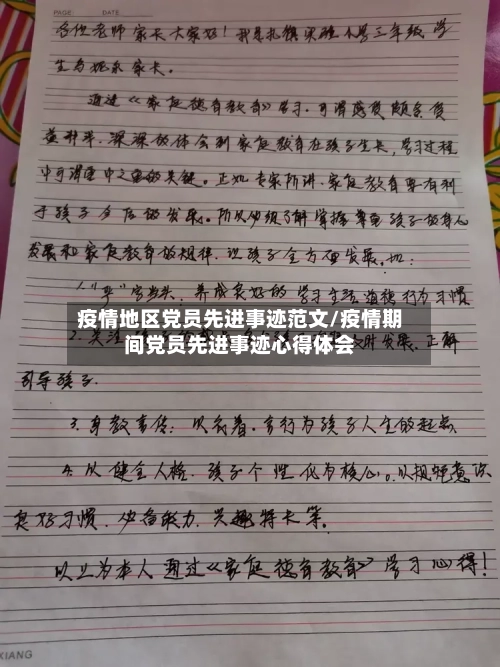 PAGE DATE
各位老师家长大家好！我是扎镇实验小学三年级学
生为妮尔家长。
通过《家庭德育教育》学习，可谓感质颇多负
益非平，深深的体会到家庭教育在孩子生长，学习过程
中可谓重中之重的关键。正如专家所讲，家庭教育要有利
于孩子今后的发展。所以必须了解掌握尊重孩子的身心
发展和家庭教育的规律，让孩子全方面发展，如：
1."严"字当头，养成良好的学习生活道德行为习惯
疫情地区党员先进事迹范文/疫情期
间党员先进事迹心得体会
2.关注 发展，正解
引导孩子.
3.身教言传：以 着，言行为孩子人生的起点
4.从健全人格，孩子个性化为核心。以规矩意识
良好习惯，必备能力，兴趣特长等，
以上为本人通过《家庭德育教育》学习心得！
XIANG